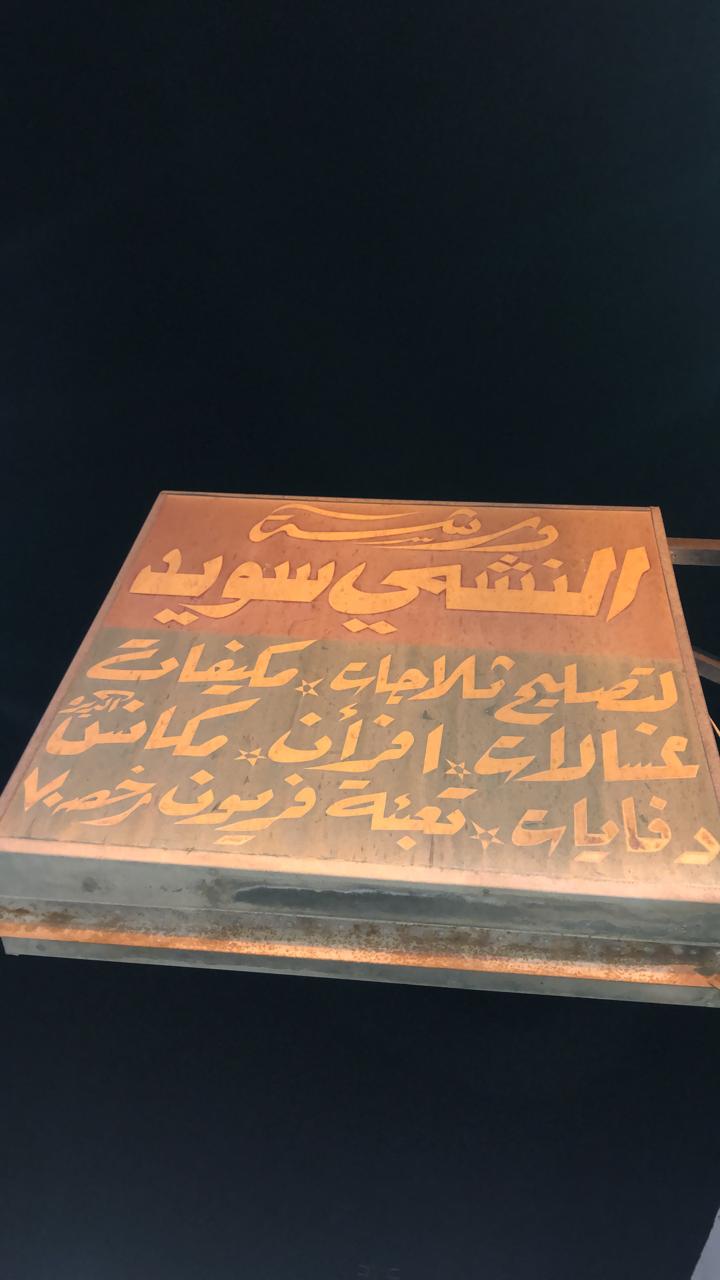 ورشة
النشمي سويد
لتصليح ثلاجات ☆ مكيفات
غسالات ☆ افرأن ☆ مكانس
دفايات ☆ تعبئة فريون رخصه ٧٠